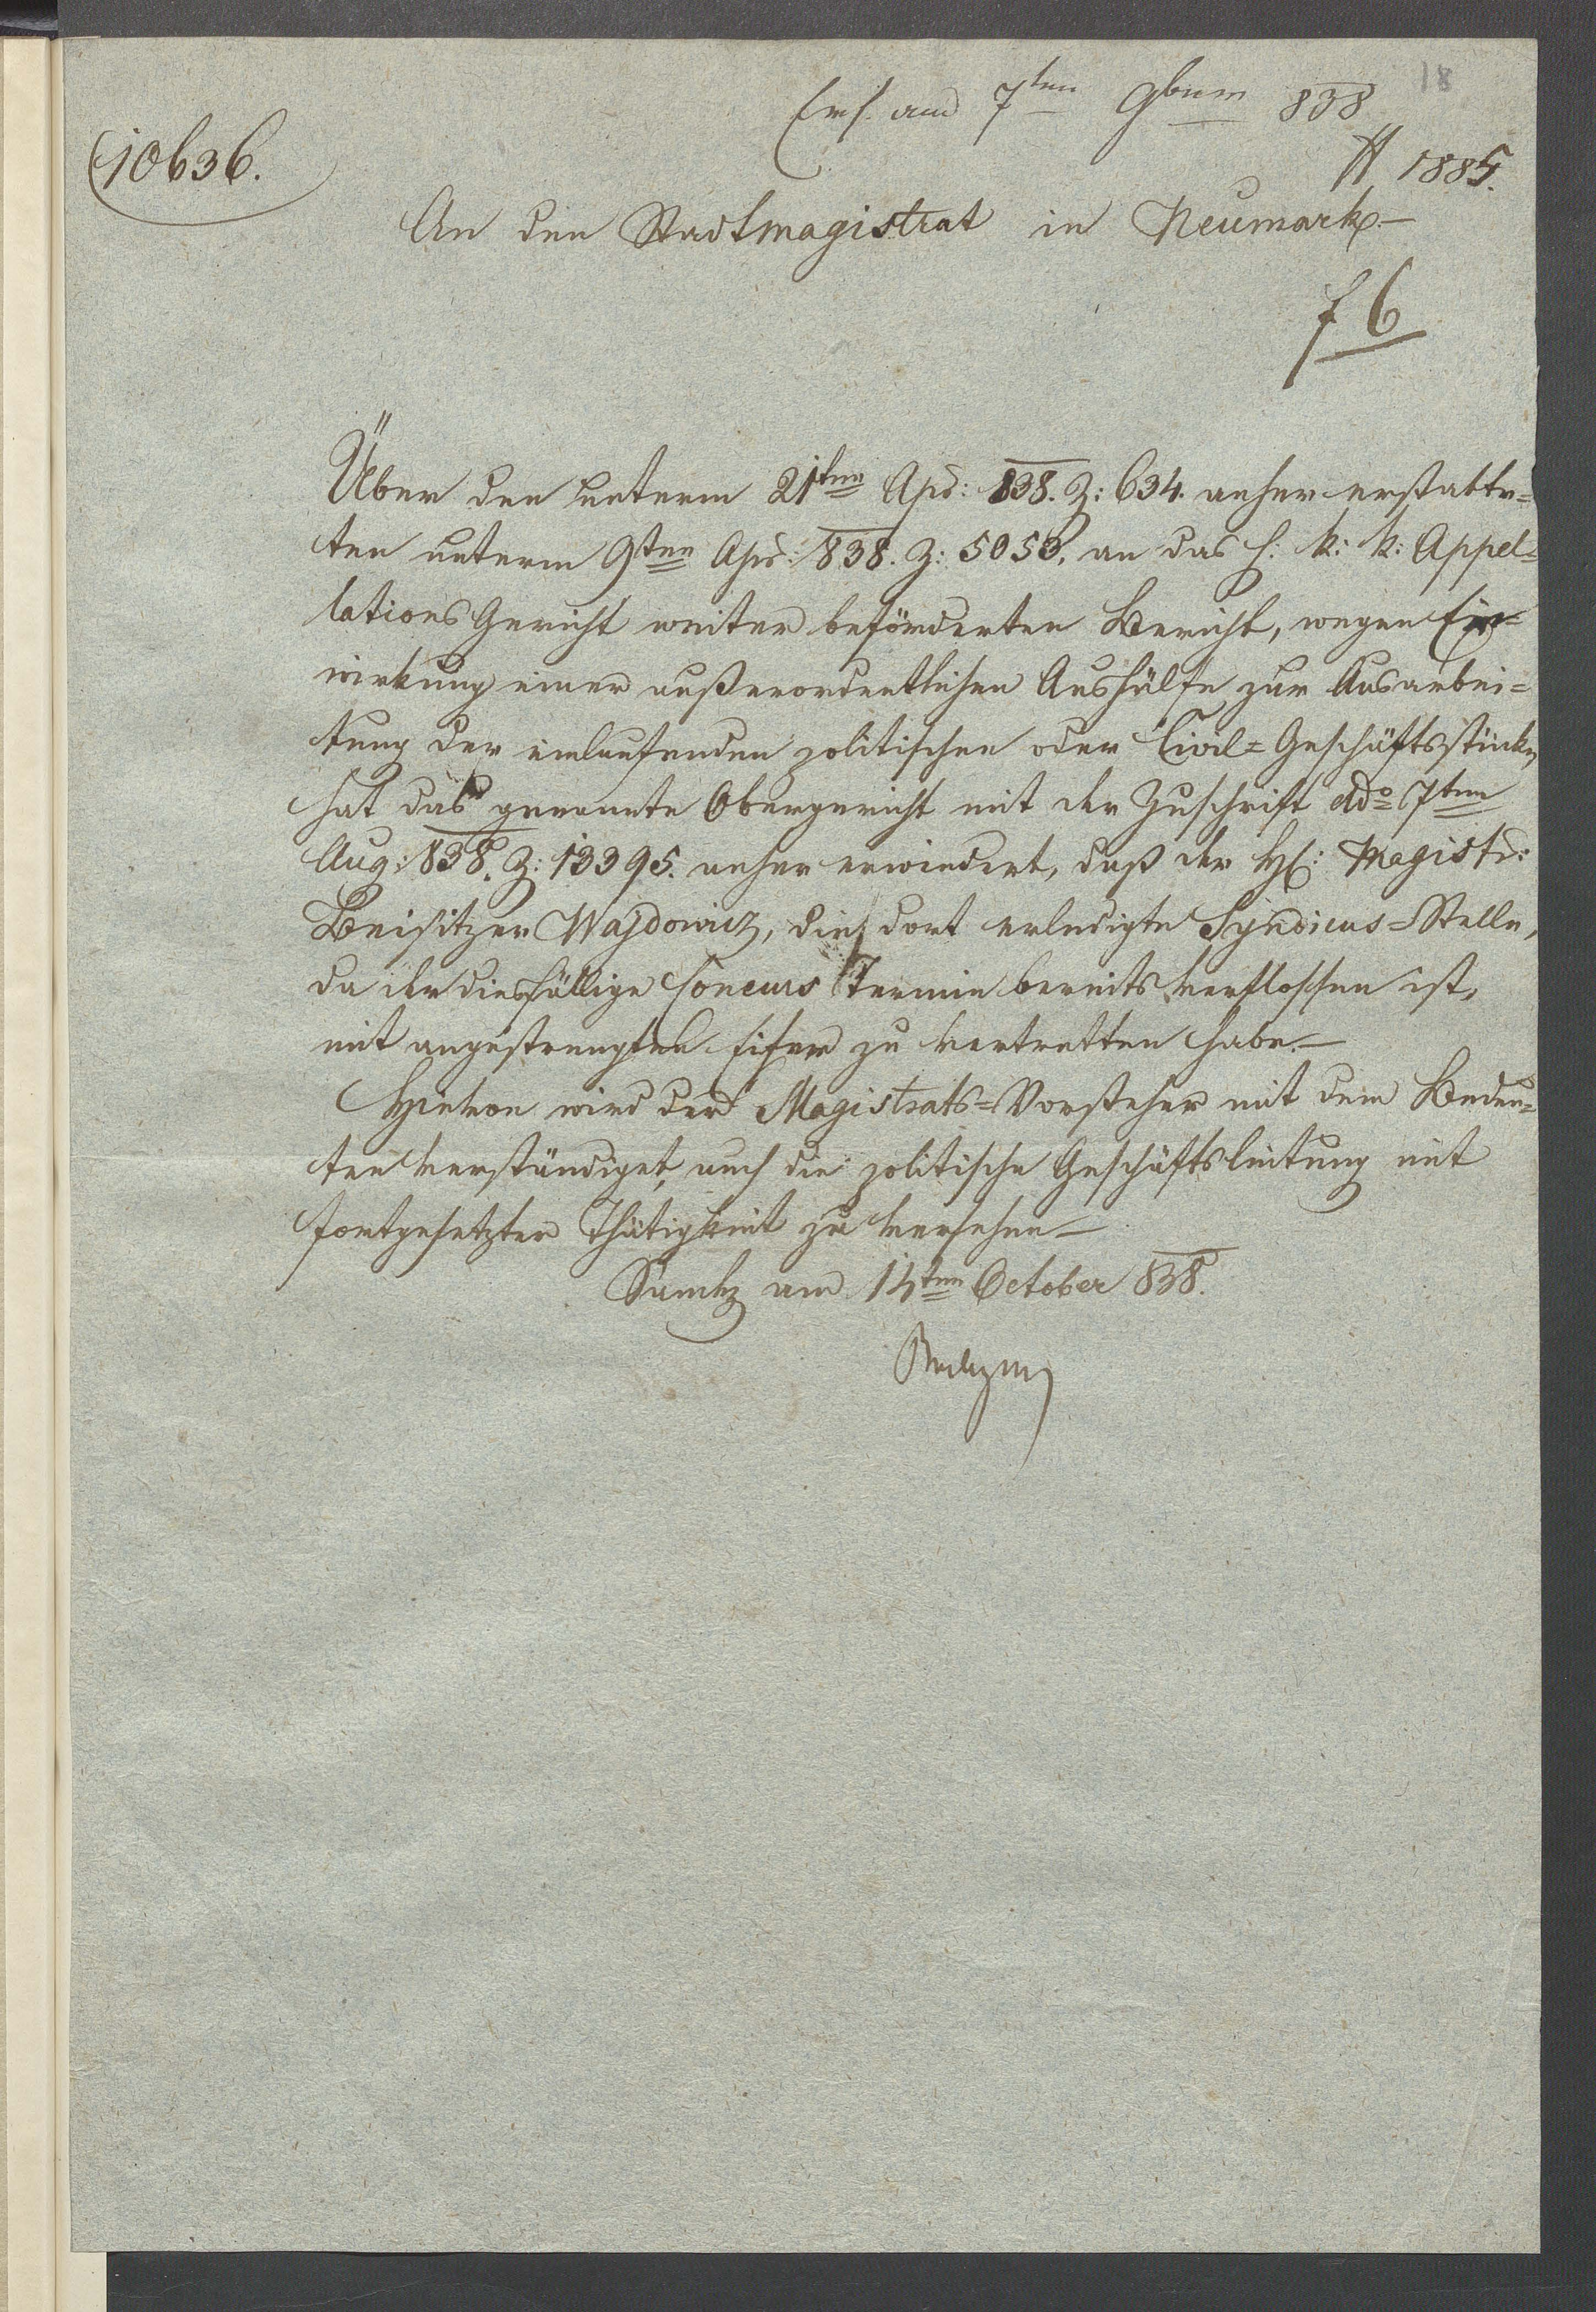 18
Erh. am 7ten 9bum 838
10636.
H 1885.
An den Stadtmagistrat in Neumark.—
f 6
Über den unterm 21ten Apr: 838. Z: 634. anher erstatte=
ten unterm 9ten Apr: 838. Z: 5053. an das h: k: k: Appel=
lations Gericht weiter beförderten Bericht, wegen Er=
wirkung einer außerordentlichen Aushülfe zur Ausarbei=
tung der einlaufenden politischen oder Civil=Geschäftsstücke,
hat das genannte Obergericht mit der Zuschrift ddo 7ten
Aug: 838. Z: 13395. anher erwiedert, daß der H: Magistr:
Beisitzer Wajdowicz, die dort erledigte Syndicus=Stelle,
da der diesfällige Concurs Termin bereits verflossen ist,
mit angestrengten Eifer zu vertretten habe.—
Hievon wird der Magistrats=Vorsteher mit dem Bedeu=
ten verständiget, auch die politische Geschäftsleitung mit
fortgesetzter Thätigkeit zu versehen—
Sandez am 14ten October 838.